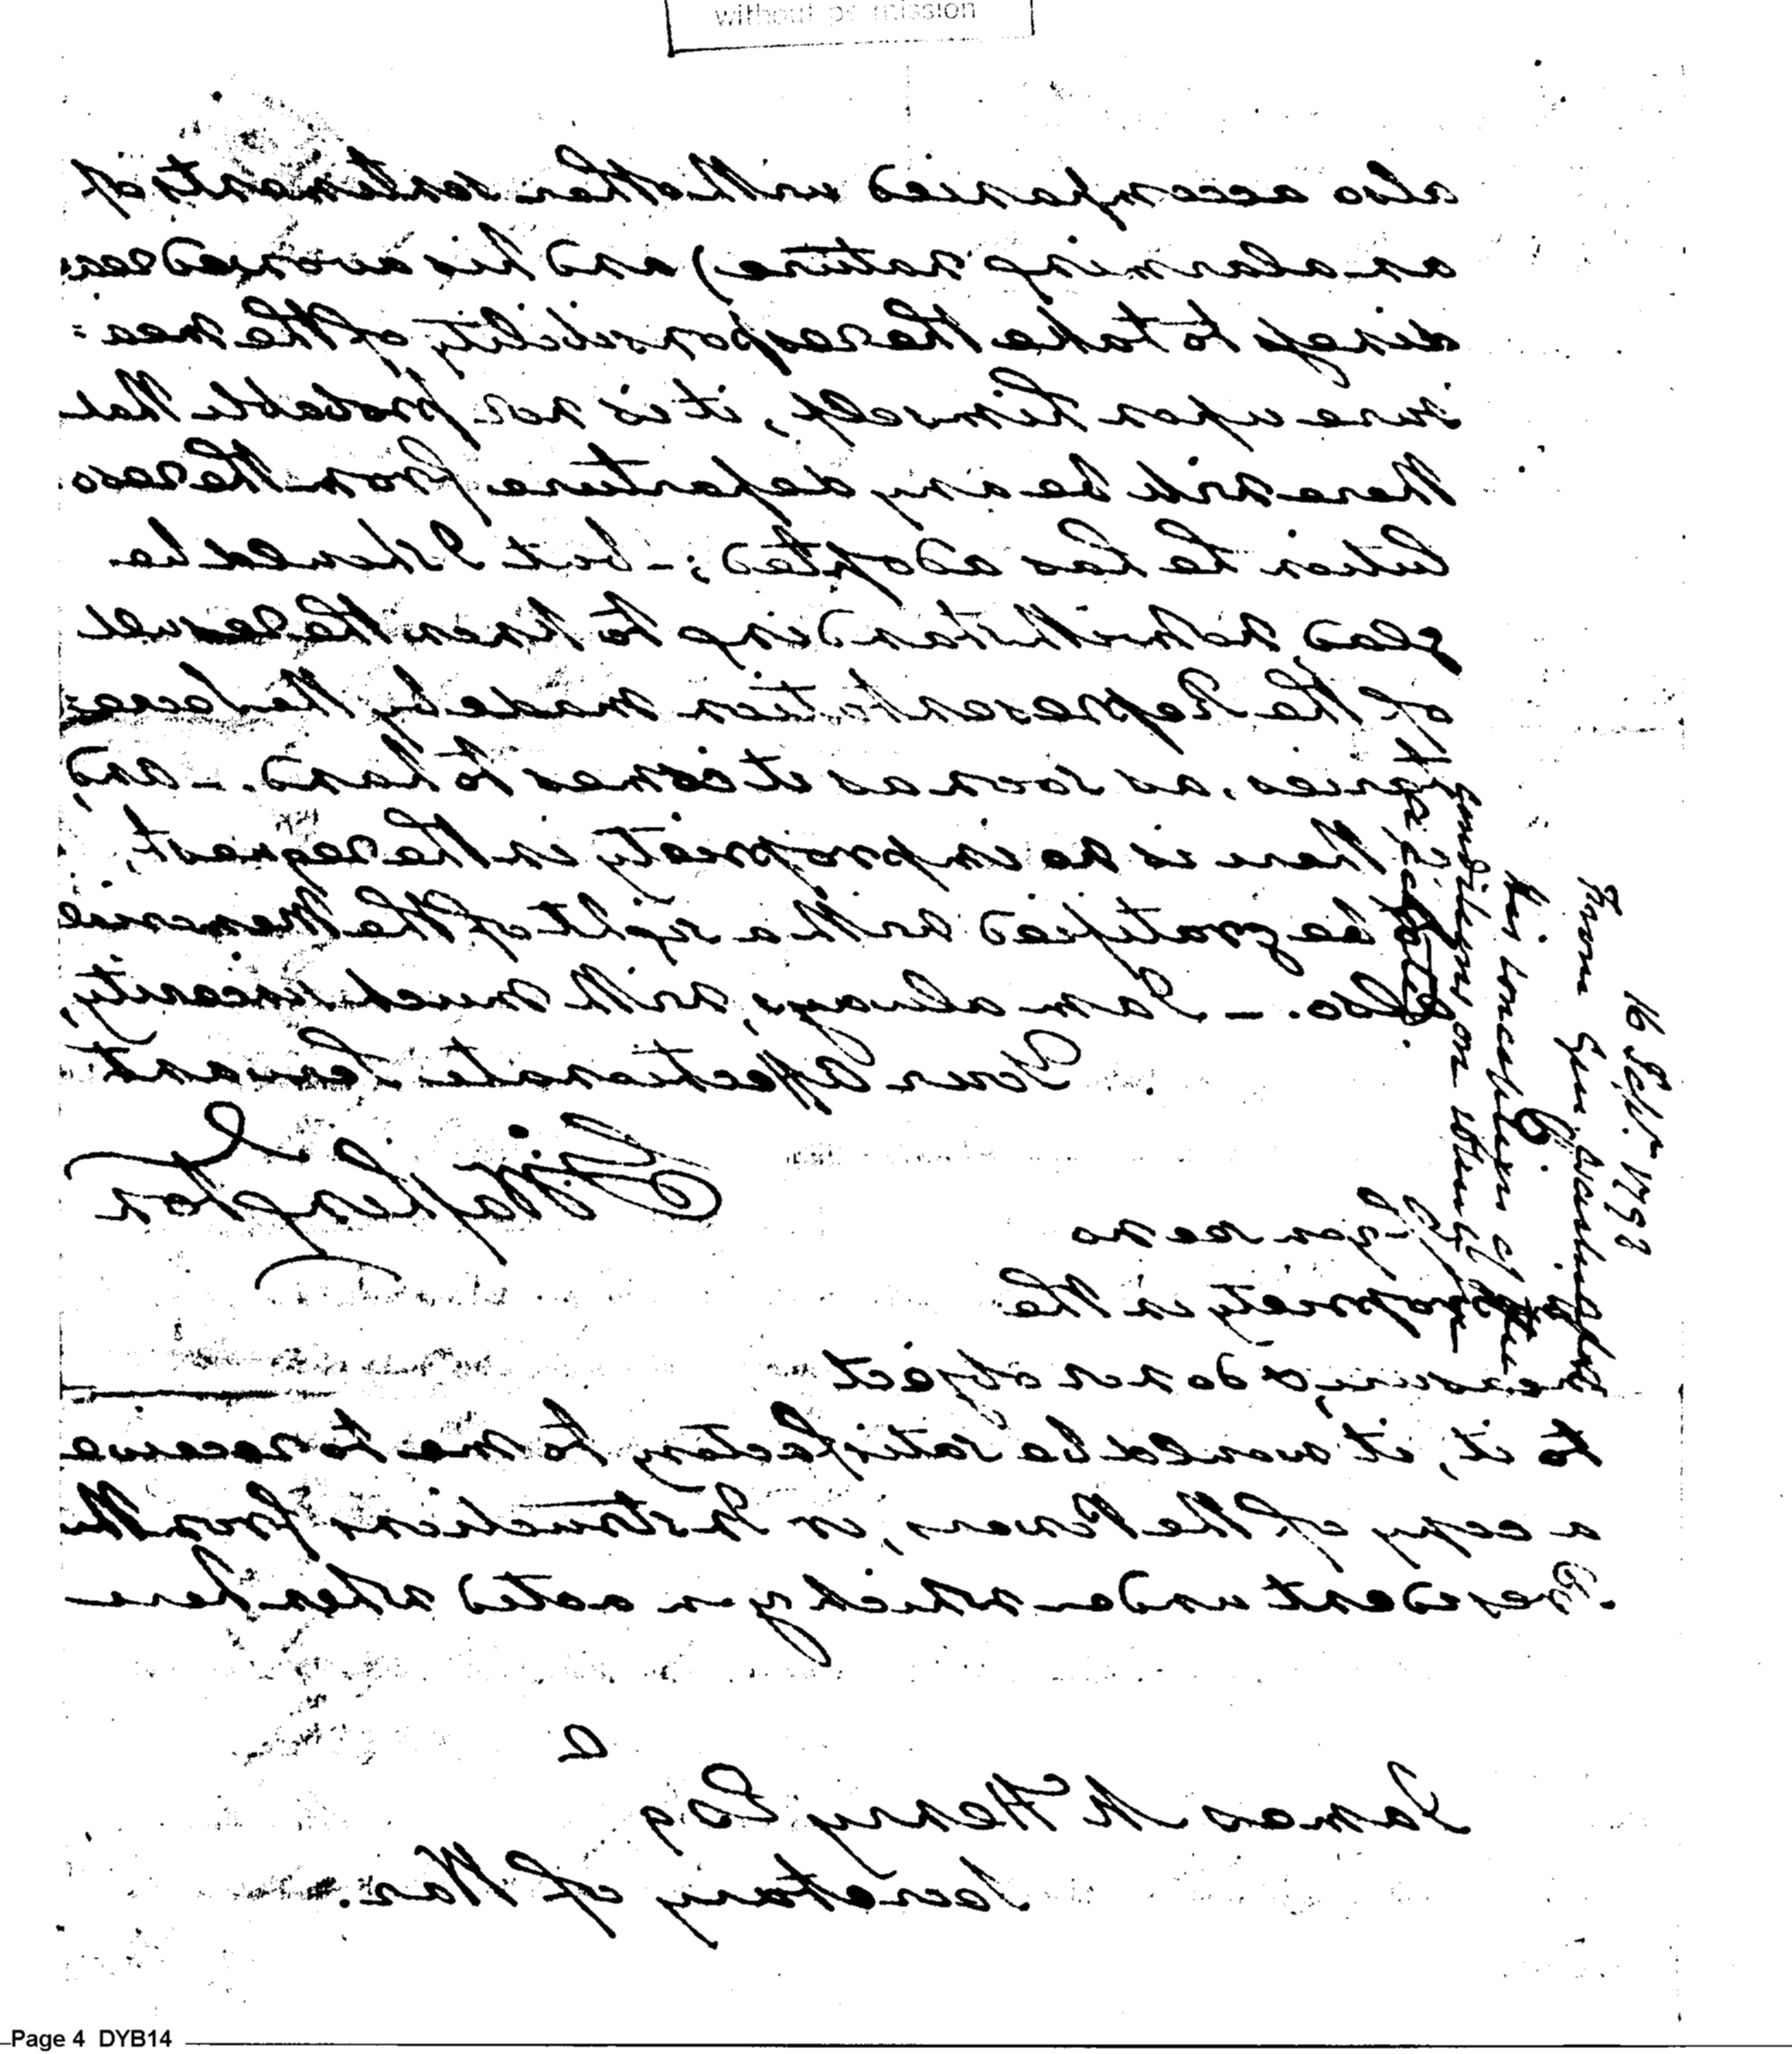 without permission
also accompanied with other sentiments of
an alarming nature) and his avowed rea=
diness to take the responsibility of the mea=
sure upon himself, it is not probable that
there will be any departure from the reso
lution he has adopted; - but I should be
glad notwithstanding to know the result
of the Representation made by the Secre=
taries, as soon as it comes to hand. - and,
if there is no impropriety in the request,
to be gratified with a sight of the Memorial
also. - I am always, with much sincerity,
Your Affectionate Servant
G:Washington
If you see no
impropriety in the
measure, & do not object
to it, it would be satisfactory to me to receive
a copy of the Powers, or Instructions from the
President under which you acted when here
James McHenry Esq
Secretary of War.
16 Septr. 1798
From Gen. Washington
his conception of the
conditions on which
Page 4 DYB14